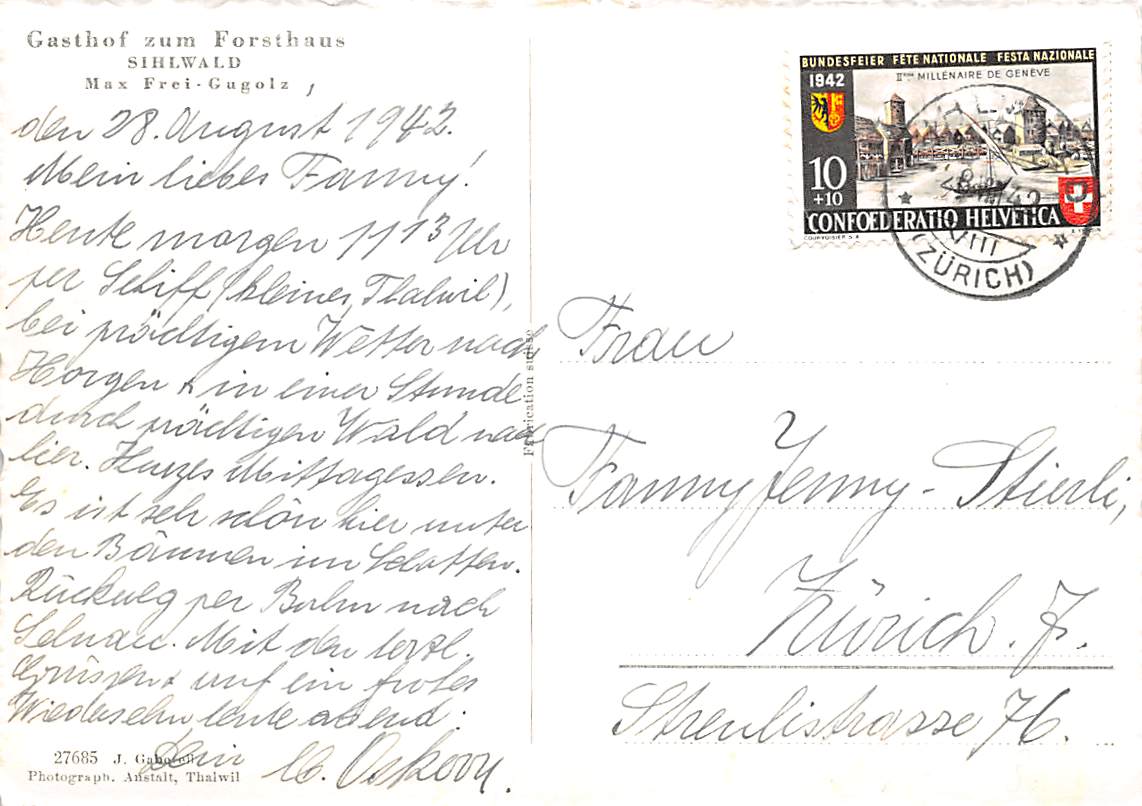 Gasthof zum Forsthaus
SIHLWALD
Max Frei-Gugolz
den 28. August 1942.
Mein liebes Fanny!
Heute morgen 11 13 Uhr
per Schiff (kleines Thalwil),
bei prächtigem Wetter nach
Horgen & in einer Stunde
durch prächtigen Wald nach
hier. Kurzes Mittagessen.
Es ist sehr schön hier unter
den Bäumen im Schatten.
Rückweg per Bahn nach
Selnau. Mit den herzl.
Grüssen & auf ein frohes
Wiedersehn heute abend.
Dein
27685 J. Gaberell
Photograph. Anstalt, Thalwil
Fabrication suisse
BUNDESFEIER FÊTE NATIONALE FESTA NAZIONALE
1942
IIème MILLÉNAIRE DE GENÈVE
10
+10
CONFOEDERATIO HELVETICA
COURVOISIER S.A.
VIII
(ZÜRICH)
Frau
Fanny Jenny-Stierli,
Zürich. 7.
Streulistrasse 76.